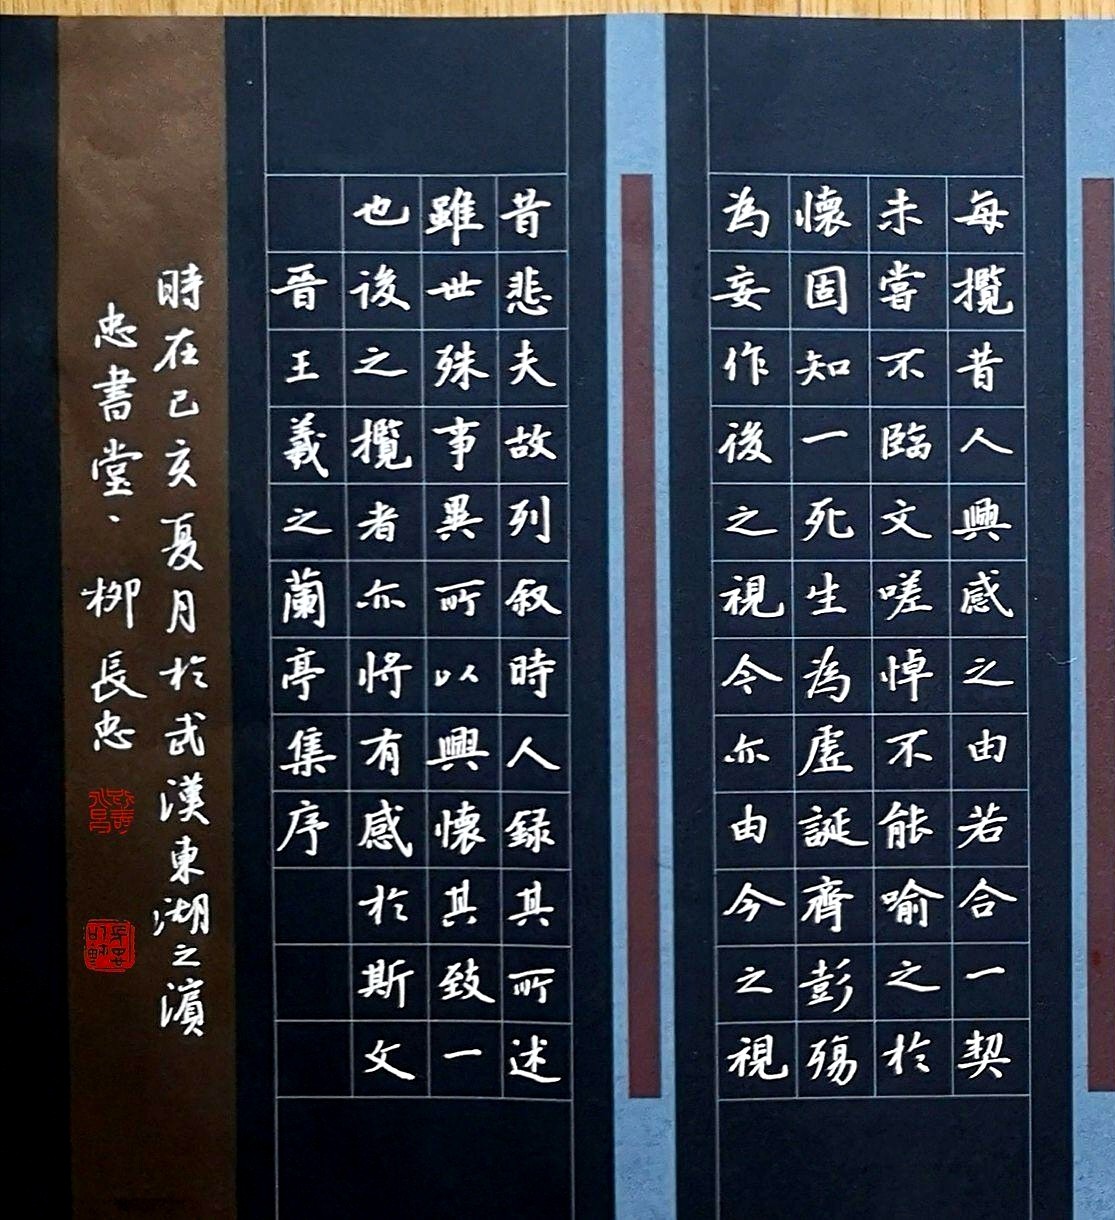 每攬昔人興感之由若合一契
未嘗不臨文嗟悼不能喻之於
懷固知一死生為虛誕齊彭殤
為妄作後之視今亦由今之視
昔悲夫故列叙時人録其所述
雖世殊事異所以興懷其致一
也後之攬者亦将有感於斯文
晉王羲之蘭亭集序
時在己亥夏月於武漢東湖之濱
忠書堂、柳長忠